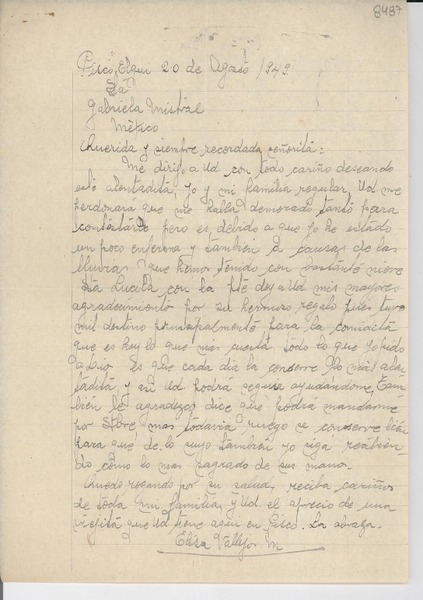 8487
Pisco Elqui 20 de Agosto 1949.
Sta
Gabriela Mistral
México
Querida y siempre recordada señorita:
Me dirijo a Ud con todo cariño deseando
esté alentadita, yo y mi familia regular, Ud me
perdonará que me halla demorado tanto para
contestarte pero es debido a que yo he estado
un poco enferma y tambien a causa de las
lluvias que hemos tenido con bastante nieve
Sta Lucila con la pte doy a Ud mis mayores
agradecimiento por su hermoso regalo pues tuvo
mil destino principalmente para la comidita
que es hoy lo que más cuesta todo lo que yo pido
a Dio es que cada dia la conserve
y así Ud podrá seguir ayudandome, Tam
bién le agradezco dice que podrá mandarme
por Obre mas todavia ruego se conserve bien
para que de lo suyo tambien yo siga recibien
do como lo mas sagrado de sus manos.
Quedo rogando por su salud, reciba cariños
de toda mi familia y Ud el aprecio de una
viejita que Ud tiene aquí en Pisco. La abraza.
Elisa Vallejos M